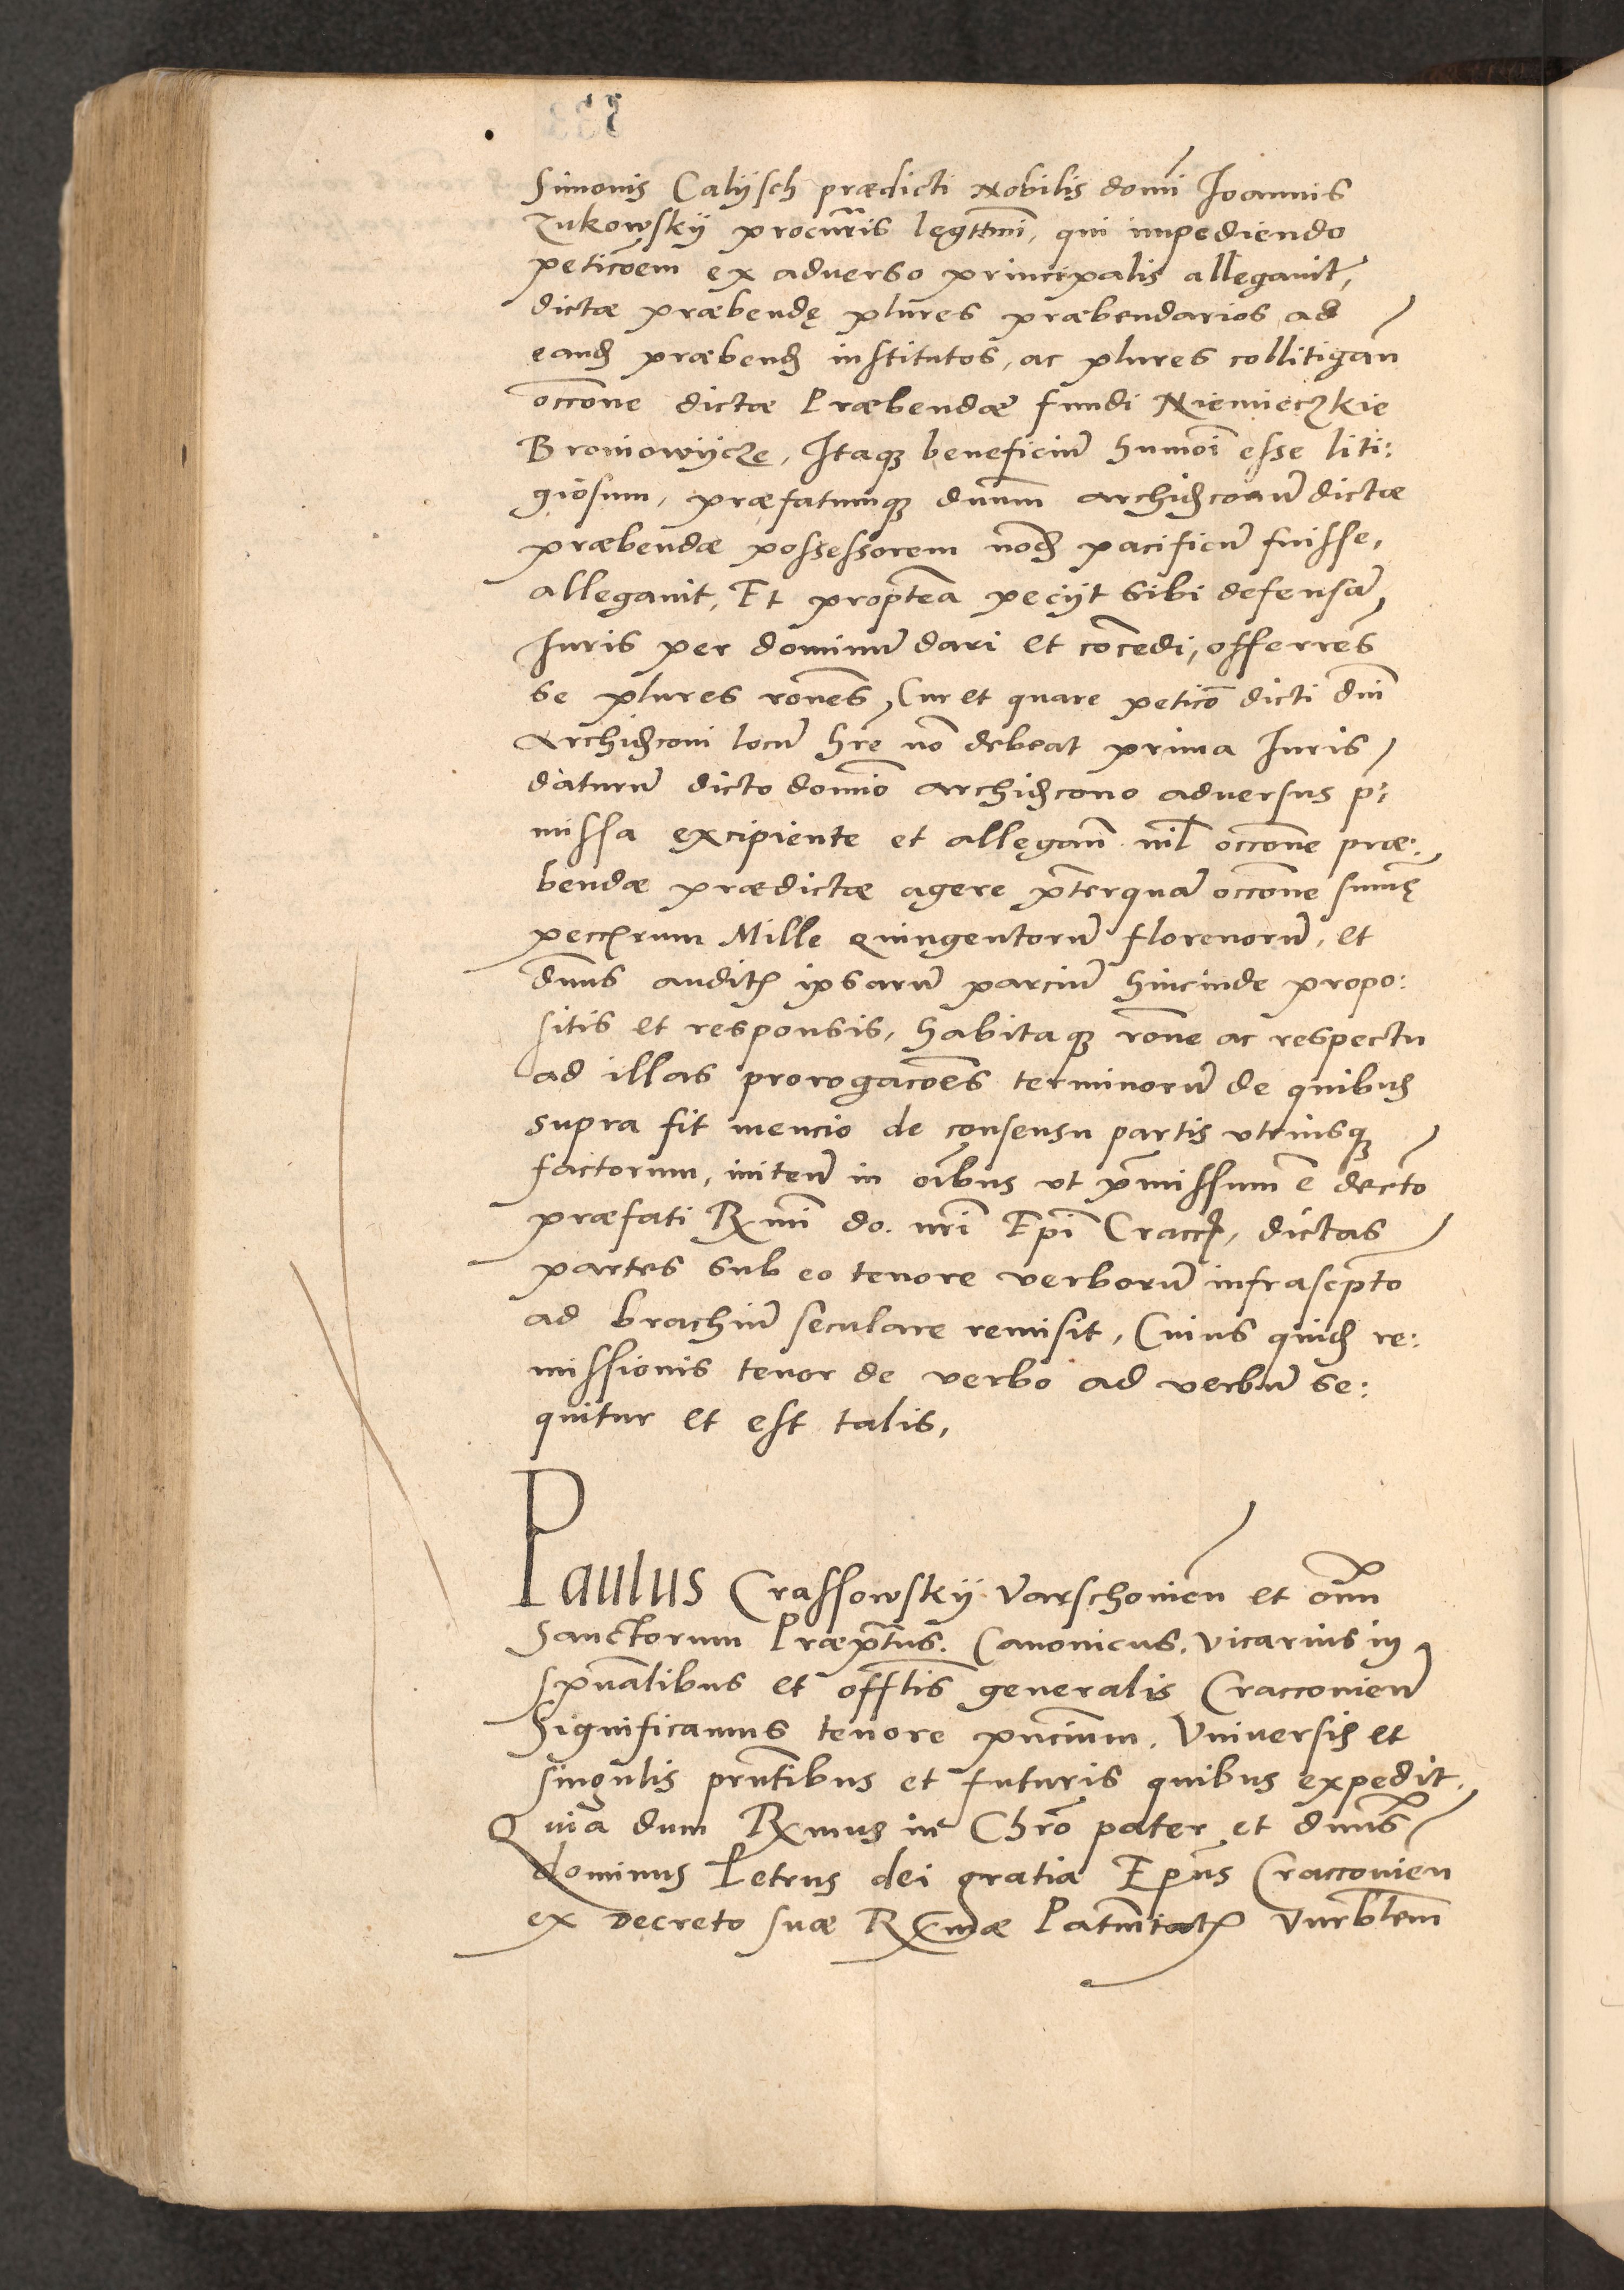 Simonis Calijsch prædicti Nobilis domi̅ Joannis
Zukowskij procur̅ris legtt̅imi, qui impediendo
petico̅em ex adverso principalis allegavit,
dictæ præbendę plures præbendarios ad
eandꝫ præbendꝫ institutos, ac plures collitigan̅
occo̅ne dictæ Præbendæ fundi Niemieczkie
Broniowijcze, Itaqꝫ beneficiu̅ humo̅i esse liti:
giosum, præfatumqꝫ dnu̅m archidꝫconu̅ dictæ
præbendæ possessorem no̅dꝫ pacificu̅ fuisse,
allegavit, Et propte̅a pecijt sibi defensa̅
Juris per dominu̅ dari et co̅cedi, offerre̅s
se plures ro̅nes, Cur et quare petico̅ dicti dni̅
Archidꝫconi locu̅ hr̅e no̅ debeat prima Juris
daturu̅ dicto domi̅o archidꝫcono adversus p:
missa excipiente et allegan̅ nil̅ occo̅ne præ:
bendæ prædictæ agere p̅terqua̅ occo̅ne sum̅ę
pecc̅rum Mille Quingentoru̅ florenoru̅, et
dn̅us auditꝭ ipsaru̅ parciu̅ hincinde propo:
sitis et responsis, habitaqꝫ ro̅ne ac respectu
ad illas prorogaco̅es terminoru̅ de quibus
supra fit mencio de consensu partis utriusqꝫ
factorum, inite̅n in oi̅bus ut p̅missum e̅ decr̅to
præfati Rmi̅ do. nri̅ Epi̅ Cracc, dictas
partes sub eo tenore verboru̅ infrascp̅to
ad brachiu̅ seculare remisit, Cuius quidꝫ re:
missionis tenor de verbo ad verbu̅ se:
quitur et est talis,
Paulus Crassowskij Varschovien̅ et om̅n
Sanctorum Præp̅tus. Canonicus, vicarius in
sp̅ualibus et offtl̅is generalis Cracovien̅
Significamus tenore pn̅cium. Universis et
singulis prn̅tibus et futuris quibus expedit.
Quia dum Rxmus in Chr̅o pater et dn̅us
dominus Petrus dei gratia Ep̅us Cracconien
ex Decreto suæ Rxmæ Patn̅itatꝭ Vnrb̅lem